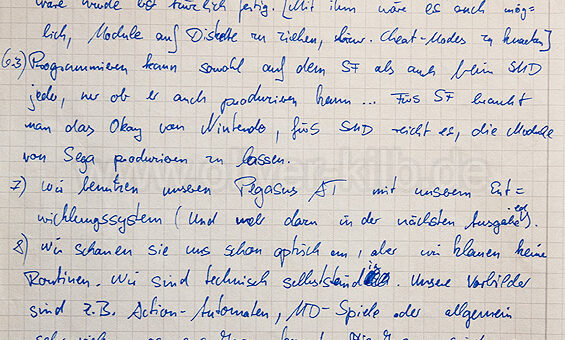 ware wurde erst kürzlich fertig. [Mit ihm wäre es auch mög=
lich, Module auf Diskette zu ziehen, bzw. Cheat-Modes zu knacken]
6.3) Programmieren kann sowohl auf dem SF als auch beim SMD
jeder, nur ob er auch produzieren kann... Fürs SF braucht
man das Okay von Nintendo, fürs SMD reicht es, die Module
von Sega produzieren zu lassen.
7) Wir benutzen unseren Pegasus AT mit unserem Ent=
wicklungssystem (Und mehr dazu in der nächsten Ausgabe).
8) Wir schauen sie uns schon optisch an, aber wir klauen keine
Routinen. Wir sind technisch selbstständig. Unsere Vorbilder
sind z.B. Action-Automaten, MD-Spiele oder allgemein